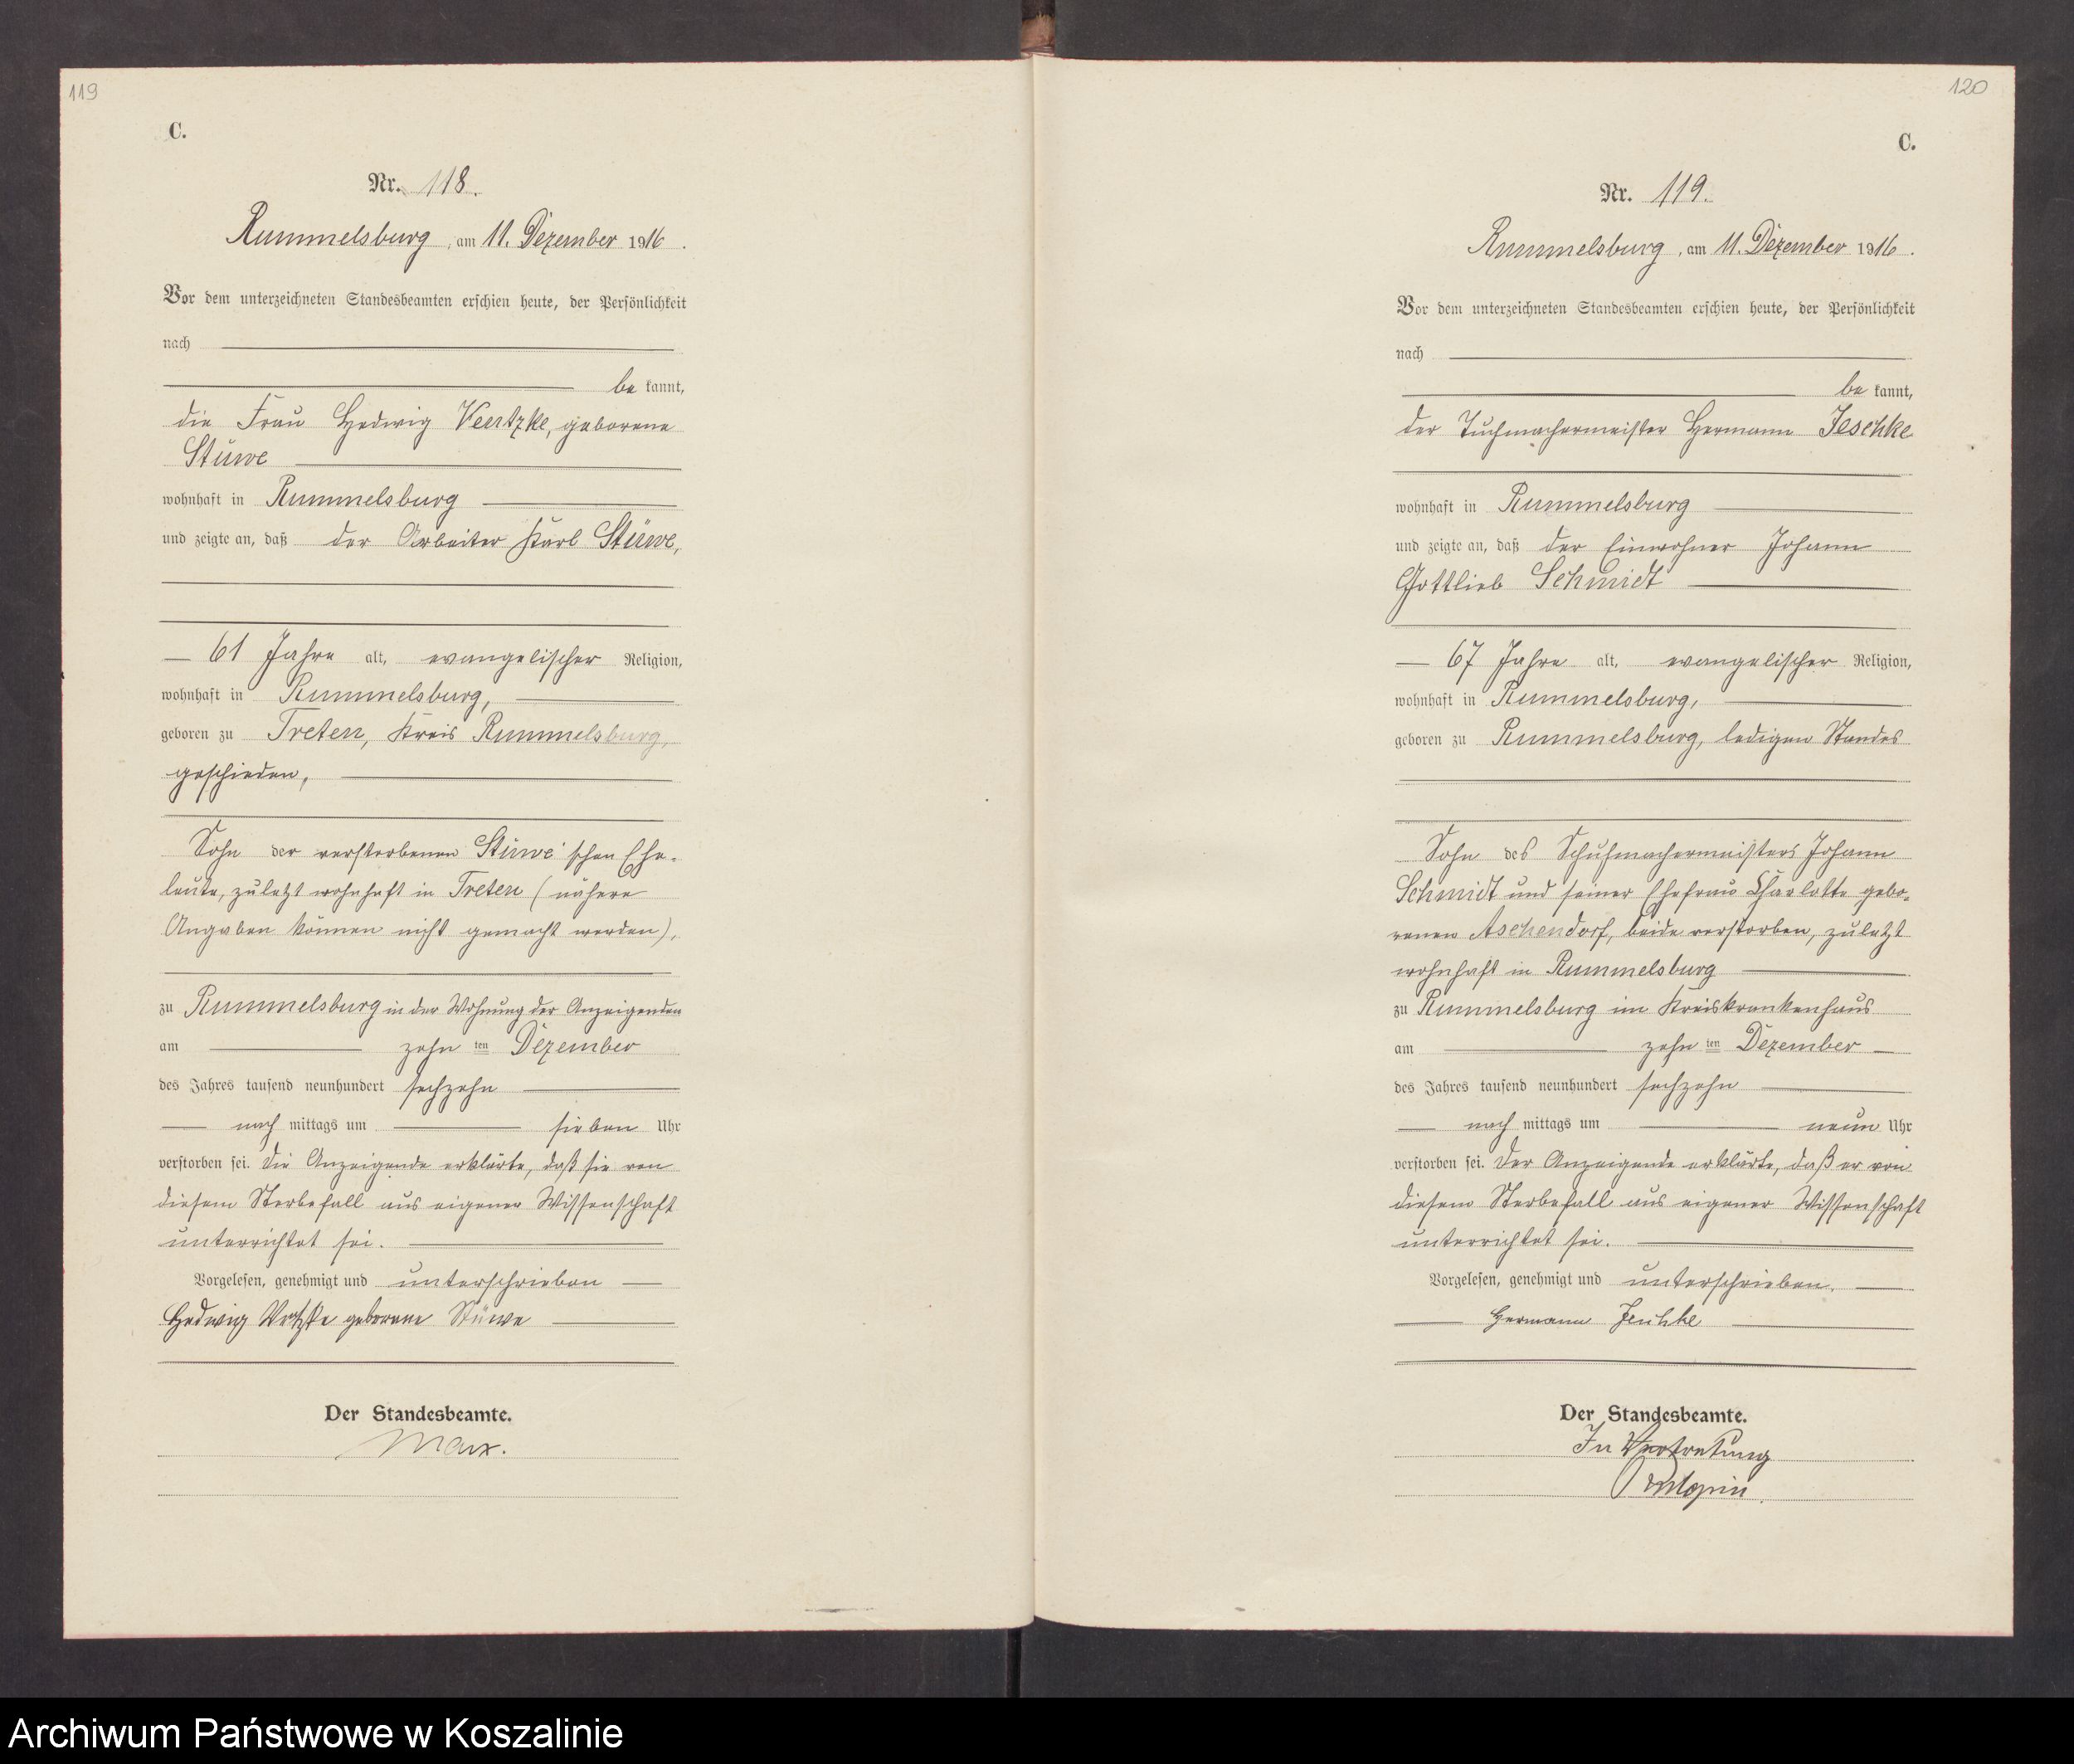 119
C.
Nr. 118.
Rummelsburg, am 11. Dezember 1916.
Vor dem unterzeichneten Standesbeamten erschien heute, der Persönlichkeit
nach
be kannt,
die Frau Hedwig geborene
Stüwe
wohnhaft in Rummelsburg
und zeigte an, daß der Arbeiter Karl Stüwe,
61 Jahre alt, evangelischer Religion,
wohnhaft in Rummelsburg,
geboren zu Treten, Kreis Rummelsburg,
geschieden,
Sohn der verstorbenen Stüwe'schen Ehe-
leute, zuletzt wohnhaft in Treten (nähere
Angaben können nicht gemacht werden),
zu Rummelsburg in der Wohnung der Anzeigenden
am zehn ten Dezember
des Jahres tausend neunhundert sechzehn
nach mittags um sieben Uhr
verstorben sei. Die Anzeigende erklärte, daß sie von
diesem Sterbefall aus eigener Wissenschaft
unterrichtet sei.
Vorgelesen, genehmigt und unterschrieben
Hedwig geborene Stüwe
Der Standesbeamte.
Marx.
120
C.
Nr. 119.
Rummelsburg, am 11. Dezember 1916.
Vor dem unterzeichneten Standesbeamten erschien heute, der Persönlichkeit
nach
be kannt,
der Tuchmachermeister Hermann Jeschke
wohnhaft in Rummelsburg
und zeigte an, daß der Einwohner Johann
Gottlieb Schmidt
67 Jahre alt, evangelischer Religion,
wohnhaft in Rummelsburg,
geboren zu Rummelsburg, ledigen Standes
Sohn des Schuhmachermeisters Johann
Schmidt und seiner Ehefrau Charlotte gebo-
renen Aschendorf, beide verstorben, zuletzt
wohnhaft in Rummelsburg
zu Rummelsburg im Kreiskrankenhaus
am zehn ten Dezember
des Jahres tausend neunhundert sechzehn
nach mittags um neun Uhr
verstorben sei. Der Anzeigende erklärte, daß er von
diesem Sterbefall aus eigener Wissenschaft
unterrichtet sei.
Vorgelesen, genehmigt und unterschrieben.
Hermann Jeschke
Der Standesbeamte.
In Vertretung
Archiwum Państwowe w Koszalinie